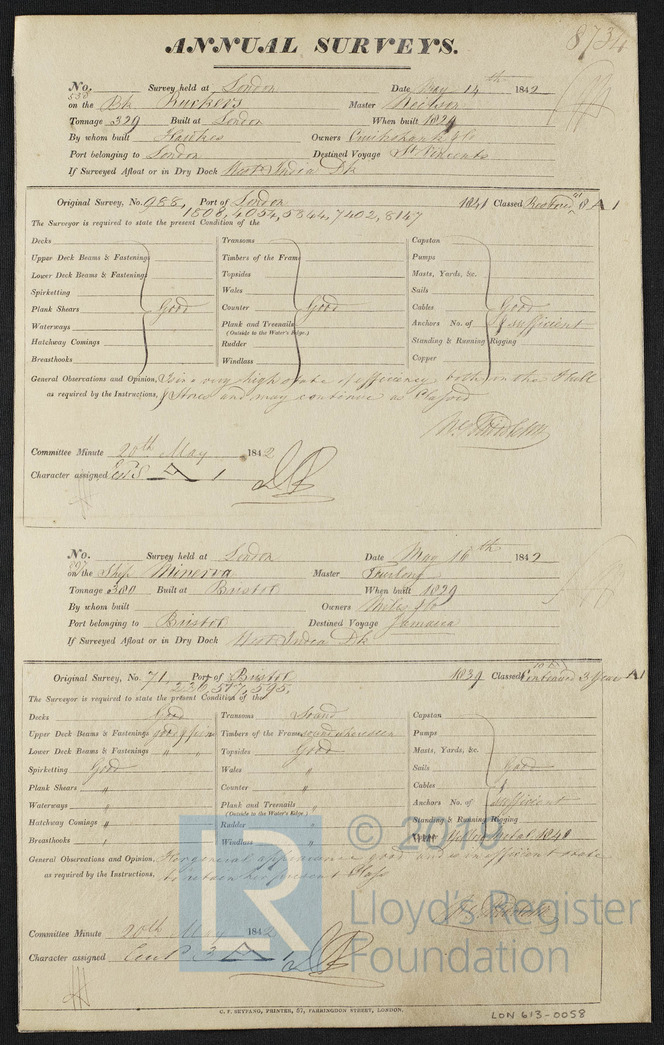 ANNUAL SURVEYS.
8734
No. 538 Survey held at London Date May 14th 1842
on the Bk Ruckers Master Neilson
Tonnage 329 Built at London When built 1829
By whom built Owners
Port belonging to London Destined Voyage St Vincents
If Surveyed Afloat or in Dry Dock West India Dk
Original Survey, No. 988, Port of London 1841 Classed Restored A 1
1808, 4054, 5844, 7402, 8147
The Surveyor is required to state the present Condition of the
Decks Transoms Capstan
Upper Deck Beams & Fastenings Timbers of the Frame Pumps
Lower Deck Beams & Fastenings Topsides Masts, Yards, &c.
Spirketting Wales Sails
Plank Shears Good Counter Good Cables Good
Waterways Plank and Treenails (Outside to the Water's Edge.) Anchors No. of & sufficient
Hatchway Comings Rudder Standing & Running Rigging
Breasthooks Windlass Copper
General Observations and Opinion, Is in a very high state of efficiency both in the Hull
as required by the Instructions, & Stores and may continue as Classed
Committee Minute 20th May 1842
Character assigned A 1
No. Survey held at London Date May 16th 1842
on the Ship Minerva Master Furlong
Tonnage 380 Built at Bristol When built 1829
By whom built Owners Miles & Co
Port belonging to Bristol Destined Voyage Jamaica
If Surveyed Afloat or in Dry Dock West India Dk
Original Survey, No. 71, Port of Bristol 1839 Classed Continued 3 Years A 1
236, 517, 595,
The Surveyor is required to state the present Condition of the
Decks Good Transoms Sound Capstan
Upper Deck Beams & Fastenings Timbers of the Frame sound where seen Pumps
Lower Deck Beams & Fastenings " " Topsides Good Masts, Yards, &c.
Spirketting Good Wales " Sails Good
Plank Shears " Counter " Cables &
Waterways " Plank and Treenails (Outside to the Water's Edge.) " Anchors No. of sufficient
Hatchway Comings " Rudder " Standing & Running Rigging
Breasthooks " Windlass " Metal 1840
General Observations and Opinion, Her general appearance good and is in efficient state
as required by the Instructions, to retain her present Class
Committee Minute 20th May 1842
Character assigned A 1
C. F. SEYFANG, PRINTER, 57, FARRINGDON STREET, LONDON.
LON 613-0058
LR
© 2018
Lloyd's Register
Foundation